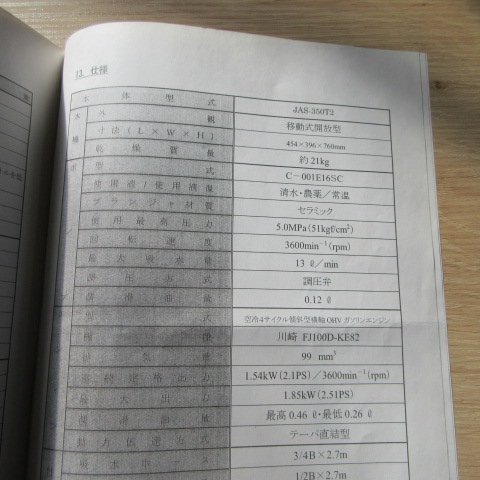 13. 仕様
本体型式 JAS-350T2
本機 外観 移動式開放型
寸法(L×W×H) 454×396×760mm
乾燥質量 約21kg
型式 C-001E16SC
使用液/使用液温 清水・農薬/常温
プランジャ材質 セラミック
使用最高圧力 5.0MPa(51kgf/cm²)
回転速度 3600min⁻¹(rpm)
最大吸水量 13 ℓ/min
調圧方式 調圧弁
潤滑油量 0.12 ℓ
式 空冷4サイクル傾斜型横軸OHVガソリンエンジン
川崎 FJ100D-KE82
排気量 99 mm³
連続定格出力 1.54kW(2.1PS)/3600min⁻¹(rpm)
最大出力 1.85kW(2.51PS)
潤滑油量 最高0.46ℓ・最低0.26ℓ
動力伝達方式 テーパ直結型
吸水ホース 3/4B×2.7m
1/2B×2.7m